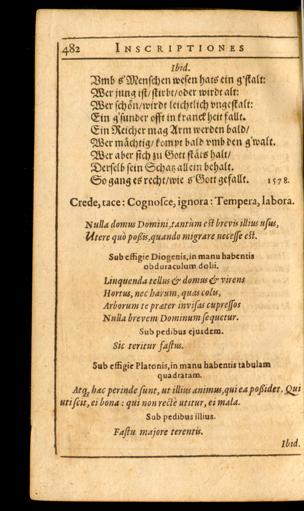 482 INSCRIPTIONES
Ibid.
Vmb s'Menschen wesen hats ein g'stalt:
Wer jung ist/stirbt/oder wirdt alt:
Wer schön/wirdt leichtlich vngestalt:
Ein g'sunder offt in kranckheit fallt.
Ein Reicher mag Arm werden bald/
Wer mächtig/kompt bald vmb den g'walt.
Wer aber sich zu Gott stäts halt/
Derselb sein Schatz allein behalt.
So gang es recht/wie s'Gott gefallt. 1578.
Crede, tace: Cognosce, ignora: Tempera, labora.
Nulla domus Domini, tantùm est brevis illius usus,
Utere quò poßis, quando migrare necesse est.
Sub effigie Diogenis, in manu habentis
obduraculum dolii.
Linquenda tellus & domus & virens
Hortus, nec harum, quas colu,
Arborum te præter invisas cupressos
Nulla brevem Dominum sequetur.
Sub pedibus ejusdem.
Sic teritur fastus.
Sub effigie Platonis, in manu habentis tabulam
quadratam.
Atq, hæc perinde sunt, ut illius animus, qui ea poßidet. Qui
uti scit, ei bona: qui non rectè utitur, ei mala.
Sub pedibus illius.
Fastu majore terentis.
Ibid.